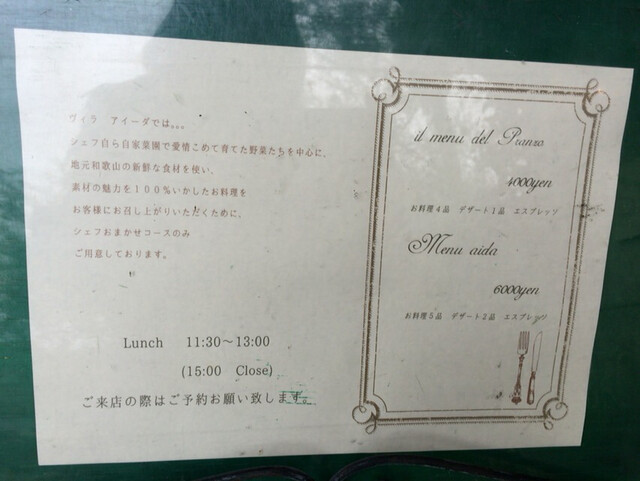 ヴィラ アイーダでは。。。
シェフ自ら自家菜園で愛情こめて育てた野菜たちを中心に、
地元和歌山の新鮮な食材を使い、
素材の魅力を100%いかしたお料理を
お客様にお召し上がりいただくために、
シェフおまかせコースのみ
ご用意しております。
Lunch 11:30～13:00
(15:00 Close)
ご来店の際はご予約お願い致します。
il menu del Pranzo
4000yen
お料理4品 デザート1品 エスプレッソ
Menu aida
6000yen
お料理5品 デザート2品 エスプレッソ